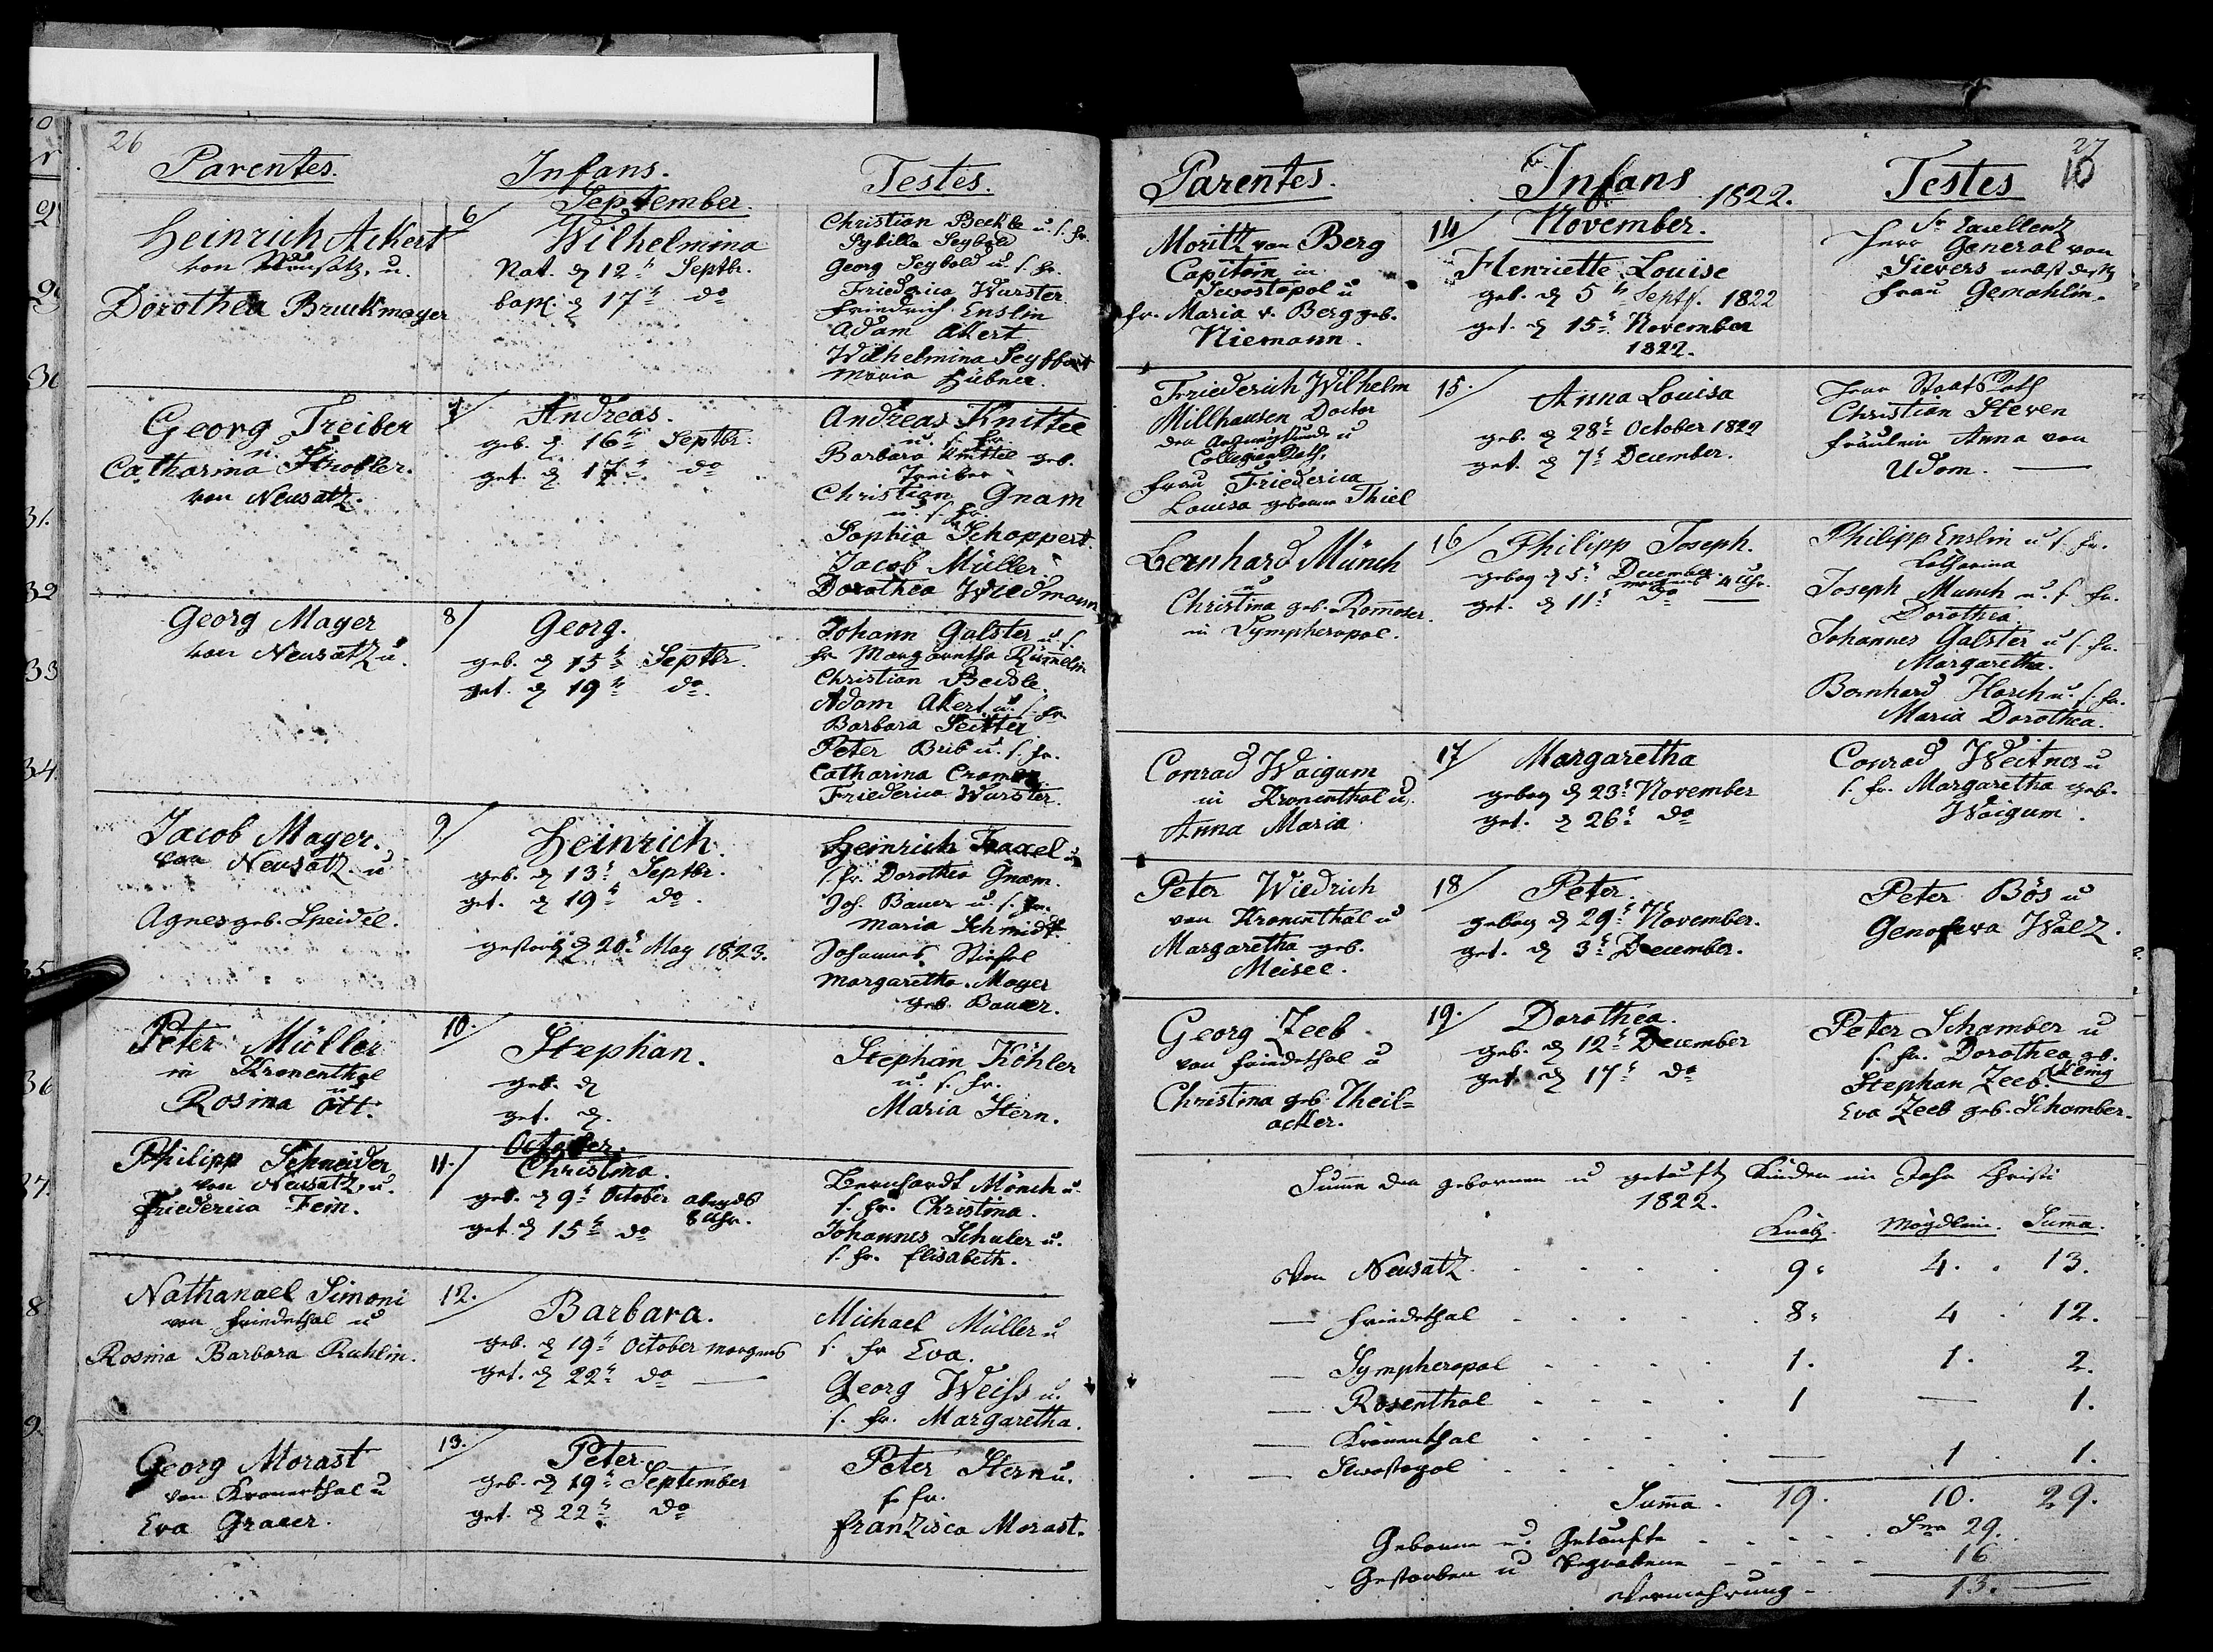 26
Parentes.
Infans.
Testes.
September.
Heinrich Ackert
von Neusatz, u.
Dorothea Bruckmayer
6/
Wilhelmina
Nat. d 12ts Septbr.
bapt. d 17ts do
Christian Bechle u. s. fr.
Sybilla Seybold
Georg Seybold u. s. fr.
Friederica Wurster
Friedrich Enslin
Adam Akert
Wilhelmina Seyffert
Maria Hübner.
Georg Treiber
u.
Catharina Strobler.
von Neusatz.
7.
Andreas.
geb. d 16ts Septbr.
get. d 17ts do
Andreas Knittel
u. s. fr.
Barbara Knittel geb.
Treiber
Christian Gnam
u. s. fr.
Sophia Schoppert.
Jacob Müller
Dorothea Wiedmann
Georg Mayer
von Neusatz u.
8/
Georg.
geb. d 15ts Septbr.
get. d 19ts do.
Johann Galster u. s.
fr. Margaretha Rümelin
Christian Bechle.
Adam Akert u. s. fr.
Barbara Seitter
Peter Brib u. s. fr.
Catharina Cramer
Friederica Wurster.
Jacob Mayer.
von Neusatz u
Agnes geb. Speidel.
9/
Heinrich.
geb. d 13ts Septbr.
get. d 19ts do.
gestorb. d 20ts May 1823.
Heinrich u
s. fr. Dorothea Gnam.
Joh. Bauer u. s. fr.
Maria Schmidt.
Johannes Stiefel
Margaretha Mayer
geb. Bauer.
Peter Müller
in Kronenthal
u.
Rosina Ott.
10.
Stephan.
geb. d
get. d.
Stephan Köhler
u. s. fr.
Maria Stern.
October.
Philipp Schneider
von Neusatz, u.
Friederica Fein.
11./
Christina.
geb. d 9ts October abends
8 Uhr.
get. d 15ts do
Bernhardt Mönch u.
s. fr. Christina.
Johannes Schuler u.
s. fr. Elisabeth.
Nathanael Simoni
von Friedethal u
Rosina Barbara Ruhlin.
12.
Barbara.
geb. d 19ts October morgens
get. d 22ts do
Michael Müller u
s. fr Eva.
Georg Weiss u.
s. fr. Margaretha.
Georg Morast
von Kronenthal u
Eva Graeer.
13.
Peter.
geb. d 19ts September
get. d 22ts do
Peter Stern u.
s. fr.
Franzisca Morast.
27
10
Parentes.
Infans 1822.
Testes
Moritz von Berg
Capitain in
Sewostopol u
fr. Maria v. Berg geb.
Niemann.
14/
November.
Henriette Louise
geb. d 5ts Septb. 1822
get. d 15ts November
1822.
Sr Excellenz
Herr General von
Sievers nebst
Frau Gemahlin.
Friederich Wilhelm
Millhausen Doctor
der Arzneykunde u
Collegien Rath.
Frau Friederica
Louisa geborne Thiel
15.
Anna Louisa
geb. d 28ts October 1822
get. d 7ts December.
Herr Staats Rath
Christian Steven
Fräulein Anna von
Udom.
Bernhard Münch
u
Christina geb. Rommoser.
in Sympheropol.
16/
Philipp Joseph.
gebor. d 5ts December
morgens 4 Uhr.
get. d 11ts do
Philipp Enslin u s. fr.
Catharina
Joseph Munch u. s. fr.
Dorothea
Johannes Galster u s. fr.
Margaretha.
Bernhard Horch u. s. fr.
Maria Dorothea.
Conrad Waigum
in Kronenthal u.
Anna Maria
17/
Margaretha
gebor. d 23ts November
get. d 26ts do
Conrad Weitner u
s. fr. Margaretha geb.
Waigum.
Peter Wiedrich
von Kronenthal u
Margaretha geb.
Meisel.
18/
Peter.
gebor. d 29ts November.
get. d 3ts December.
Peter Bös u
Genofeva Walz.
Georg Zeeb.
von Friedethal u
Christina geb. Theil=
acker.
19./
Dorothea.
geb. d 12ts December
get. d 17ts do
Peter Schamber u
s. fr. Dorothea geb.
Stephan Zeeb.
Eva Zeeb geb. Schamber.
Summe der gebornen u getauft Kinder im Jahr Christi
1822.
Knab. Mägdlein. Summa.
Von Neusatz 9. 4. 13.
— Friedethal 8. 4 12.
— Sympheropol 1. 1. 2.
— Rosenthal 1 — 1.
— Kronenthal
— Sewastopol — 1 1.
Summa. 19. 10. 29.
Geborne u. Getaufte Sma 29.
Gestorben u Begrabene 16
Vermehrung 13.